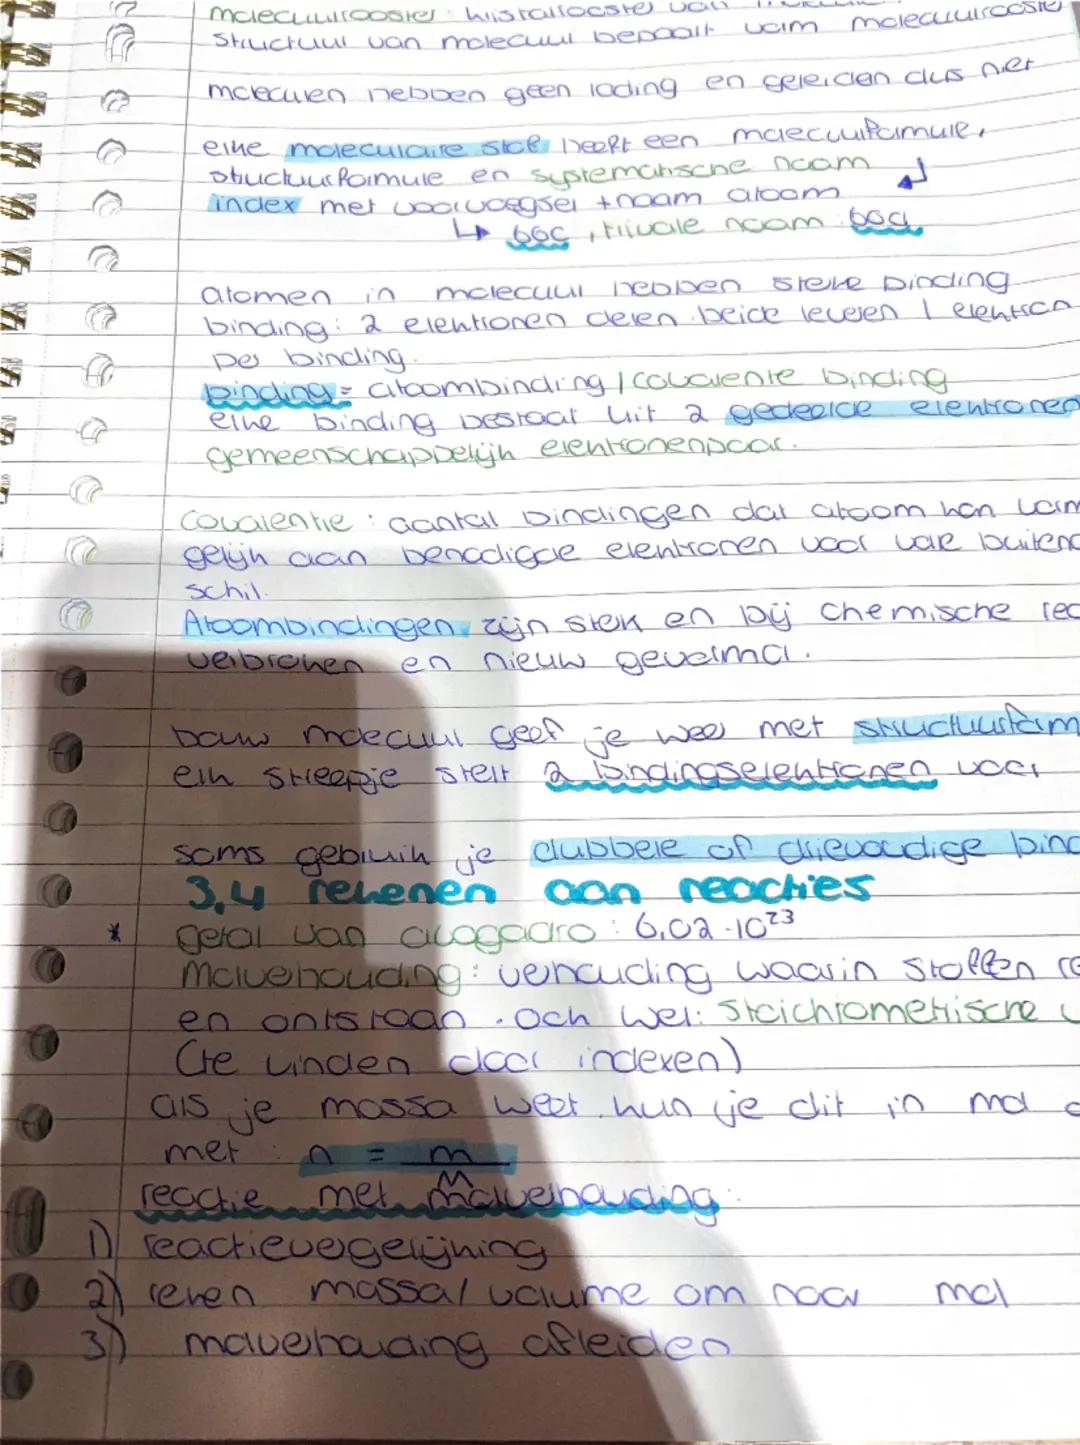 molecuulrooster: kristalrooster van
structuur van molecuul bepaalt vorm molecuulrooster
moleculen hebben geen lading en geleiden dus niet
elke moleculaire stof heeft een molecuulformule,
structuurformule en systematische naam
index met voorvoegsel + naam atoom
↳ 66C, triviale naam: 66a
atomen in molecuul hebben sterke binding
binding: 2 elektronen delen. beide leveren 1 elektron
per binding.
binding = atoombinding / covalente binding
elke binding bestaat uit 2 gedeelde elektronen
gemeenschappelijk elektronenpaar.
Covalentie: aantal bindingen dat atoom kan vorm
gelijk aan benodigde elektronen voor volle buitens
schil.
Atoombindingen zijn sterk en bij chemische reac
verbroken en nieuw gevormd.
bouw molecuul geef je weer met structuurform
elk streepje stelt 2 bindingselektronen voor
soms gebruik je dubbele of drievoudige bind
3.4 rekenen aan reacties
* getal van avogadro: 6,02 · 10²³
Molverhouding: verhouding waarin stoffen re
en ontstaan. ook wel: stoichiometrische v
(te vinden door indexen)
als je massa weet kun je dit in mol o
met: n = m/M
reactie met molverhouding:
1) reactievergelijking
2) reken massa/volume om naar mol
3) molverhouding afleiden